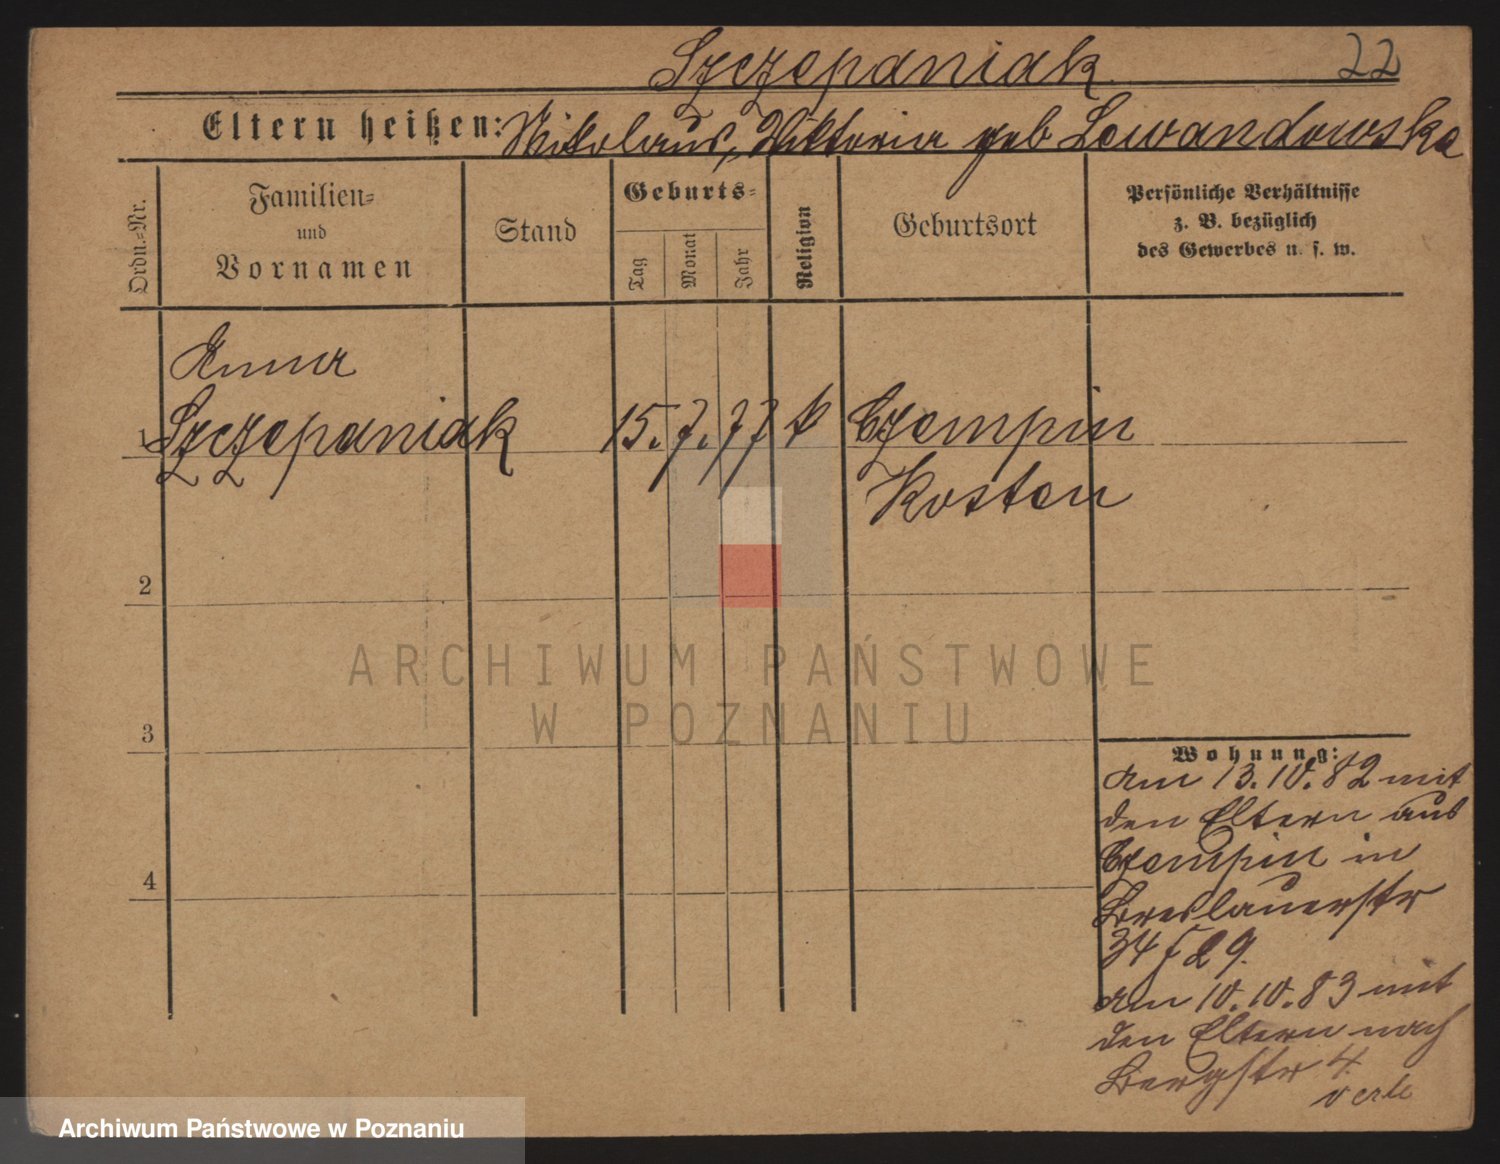 Szczepaniak
22
Eltern heißen: Nikolaus, Wiktoria geb Lewandowska
Ordn.-Nr.
Familien- und Vornamen
Stand
Geburts-
Tag
Monat
Jahr
Religion
Geburtsort
Persönliche Verhältnisse
z. B. bezüglich
des Gewerbes u. s. w.
Anna
1 Szczepaniak 15. 7. 77 k Czempin
Kosten
2
3
4
Wohnung:
am 13.10.82 mit
den Eltern aus
Czempin in
Breslauerstr
34
am 10.10.83 mit
den Eltern nach
Bergstr 4.
verte
ARCHIWUM PAŃSTWOWE
W POZNANIU
Archiwum Państwowe w Poznaniu